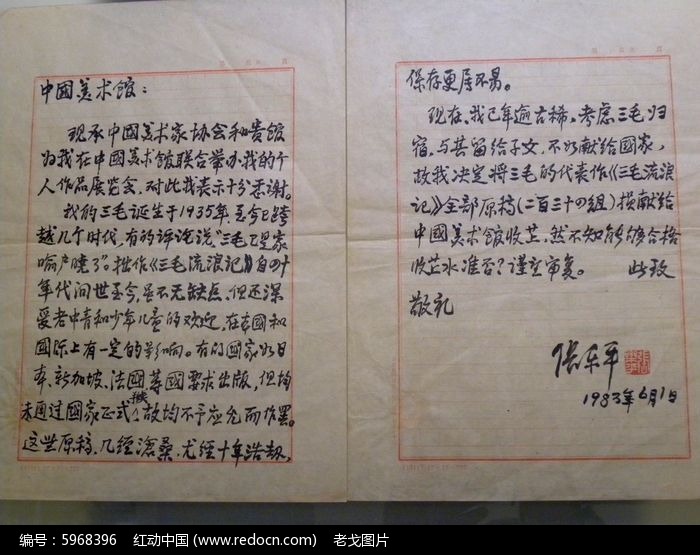 中國美术馆：
现承中國美术家协会和贵馆
为我在中國美术馆联合举办我的个
人作品展览会，对此我表示十分感谢。
我的三毛诞生于1935年，至今已跨
越几个时代，有的评论说“三毛已是家
喻户晓了”。拙作《三毛流浪记》自四十
年代问世至今，虽不无缺点，但还深
受老中青和少年儿童的欢迎，在本國和
國际上有一定的影响。有的國家如日
本、新加坡、法國等國要求出版，但均
未通过國家正式 故均不予应允而作罢。
这些原稿，几经滄桑，尤经十年浩劫，
保存更属不易。
现在，我已年逾古稀。考虑三毛归
宿，与其留给子女，不如献给國家，
故我决定将三毛的代表作《三毛流浪
记》全部原稿（二百三十四组）捐献给
中國美术馆收芷，然不知能够合格
收芷水准否？谨望审复。 此致
敬礼
张乐平
1983年6月1日
编号：5968396 红动中国 (www.redocn.com) 老戈图片